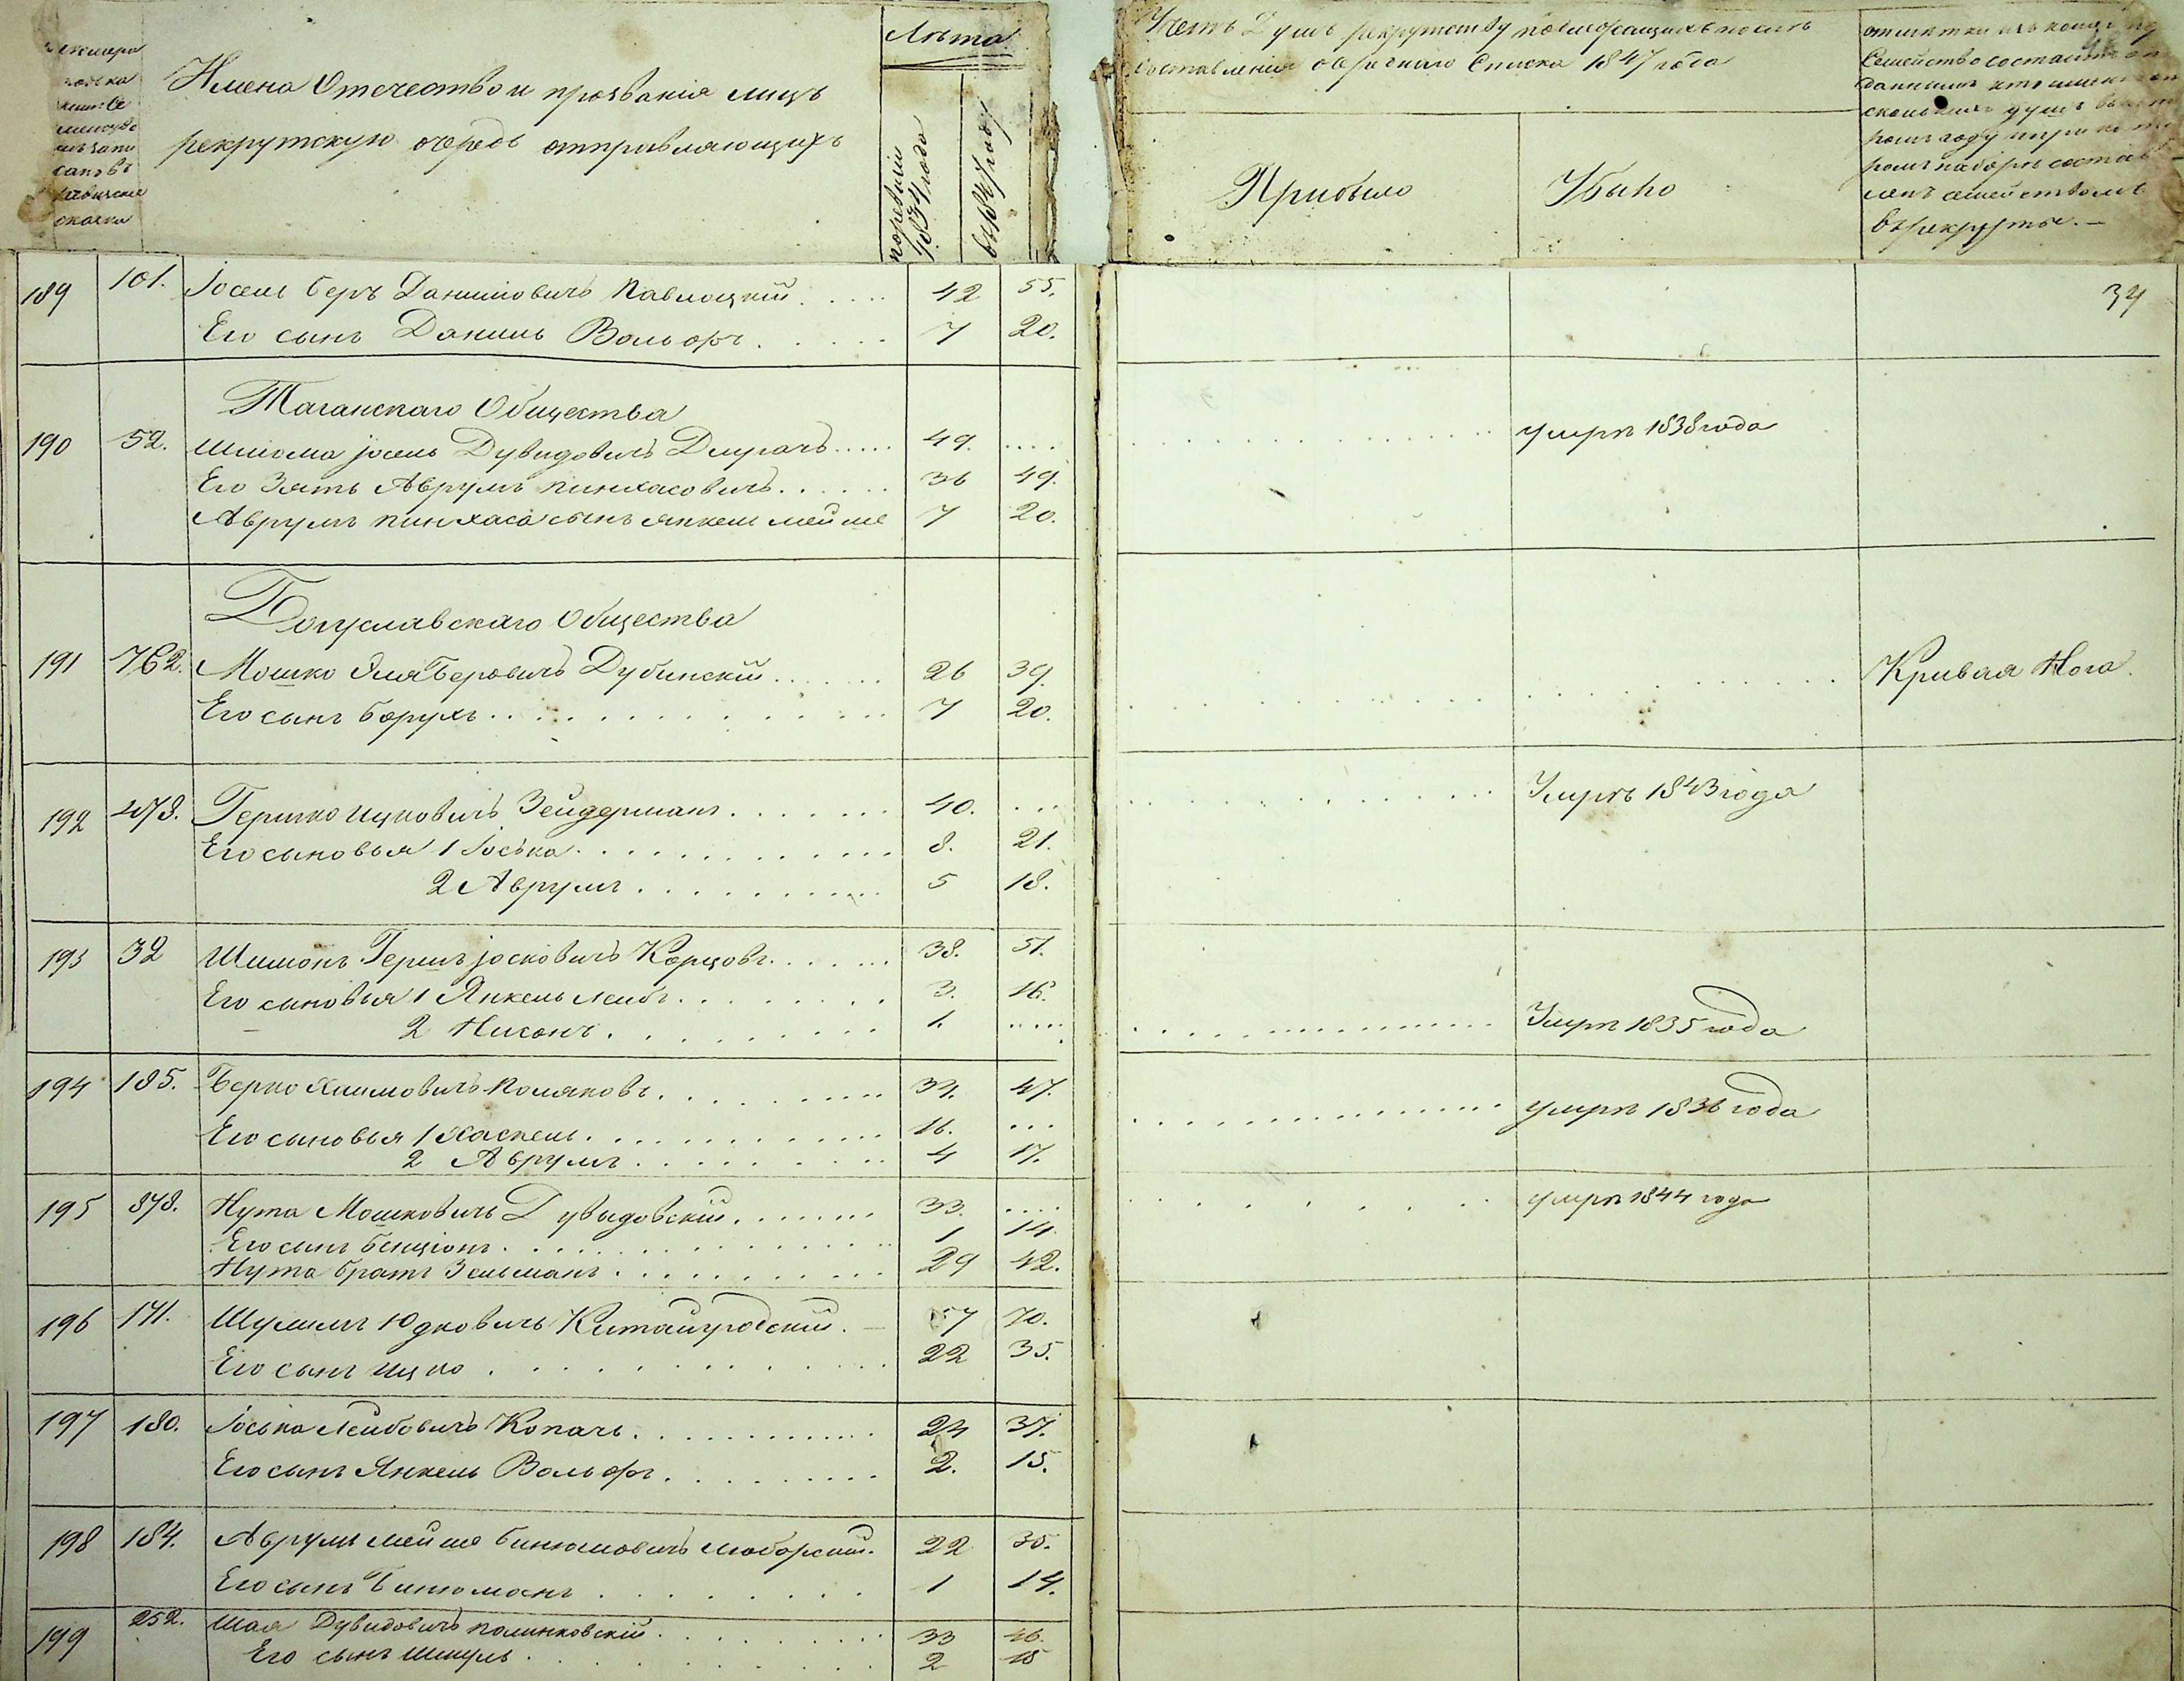 Имена Отечество и прозванія лицъ
рекрутскую очередь отправляющихъ
Лѣта
по ревизіи 1834 года
въ 1847 году
Учетъ Душъ рекрутству подлежащихъ послѣ
составленія очереднаго Списка 1847 года
Прибыло
Убыло
въ рекруты. —
34
189 101. Іосель Беръ Даниловичъ Павлоцкій 42 55.
Его сынъ Даниль Вольфъ 7 20.
Таганскаго Общества
190 52. Шлиома Іосель Дувидовичъ Длугачъ 49. умръ 1838 года
Его Зять Аврумъ Пинхасовичъ 36 49.
Аврумъ Пинхаса сынъ Янкель Мейше 7 20.
Богуславскаго Общества
191 762. Мошко Эля Беровичъ Дубинскій 26 39. Кривая Нога.
Его сынъ Борухъ 7 20.
192 478. Гершко Ицковичъ Зейдерманъ 40. Умръ 1843 года
Его сыновья 1 Іоська 8. 21.
2 Аврумъ 5 18.
193 32 Шимонъ Гершъ Іосковичъ Корцовъ 38. 51.
Его сыновья 1 Янкель Лейбъ 3. 16.
2 Нисонъ 1. Умръ 1835 года
194 185. Берко Хаимовичъ Поляковъ 34. 47.
Его сыновья 1 Хаскель 16. умръ 1836 года
2 Аврумъ 4 17.
195 878. Нута Мошковичъ Дувыдовскій 33. умръ 1844 года
Его сынъ Бенціонъ 1 14.
Нута братъ Зельманъ 29 42.
196 171. Шулимъ Юдковичъ Китайгродскій. 57 70.
Его сынъ Ицко 22 35.
197 180. Іоська Лейбовичъ Копачъ 24 37.
Его сынъ Янкель Вольфъ 2. 15.
198 184. Аврумъ Мейше Бинюмовичъ Люборскій. 22 35.
Его сынъ Бинюманъ 1 14.
199 252. Шая Дувидовичъ Полинковскій 33 46.
Его сынъ Шмуль 2 15